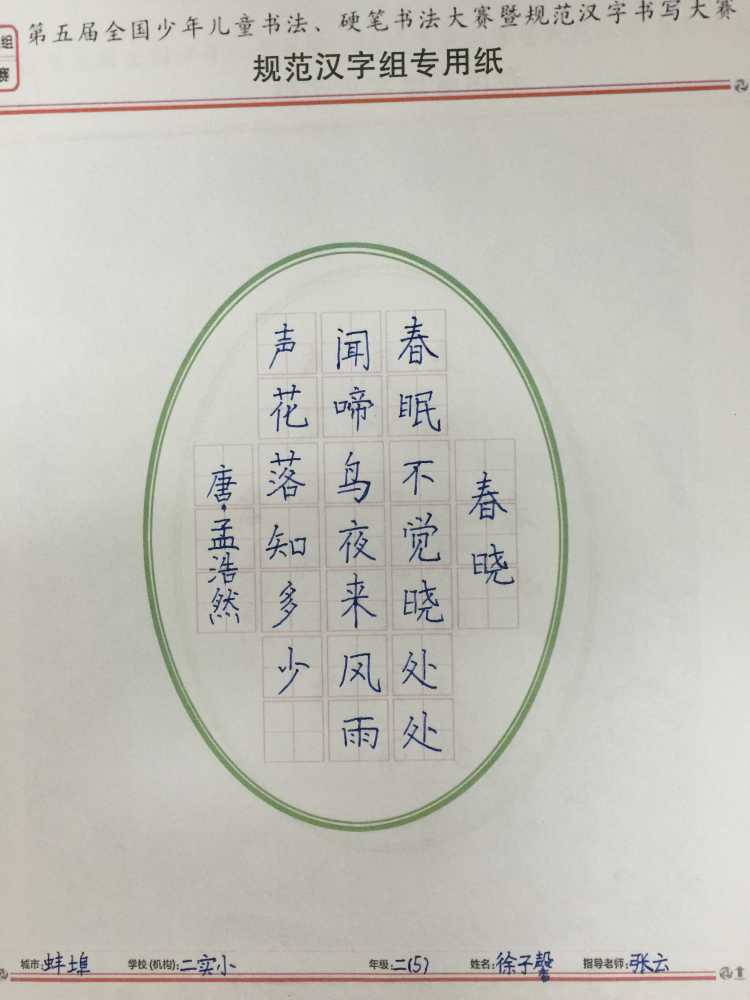 组
赛
第五届全国少年儿童书法、硬笔书法大赛暨规范汉字书写大赛
规范汉字组专用纸
春晓
春眠不觉晓处处
闻啼鸟夜来风雨
声花落知多少
唐·孟浩然
城市:蚌埠 学校(机构):二实小 年级:二(5) 姓名:徐子馨 指导老师:张云